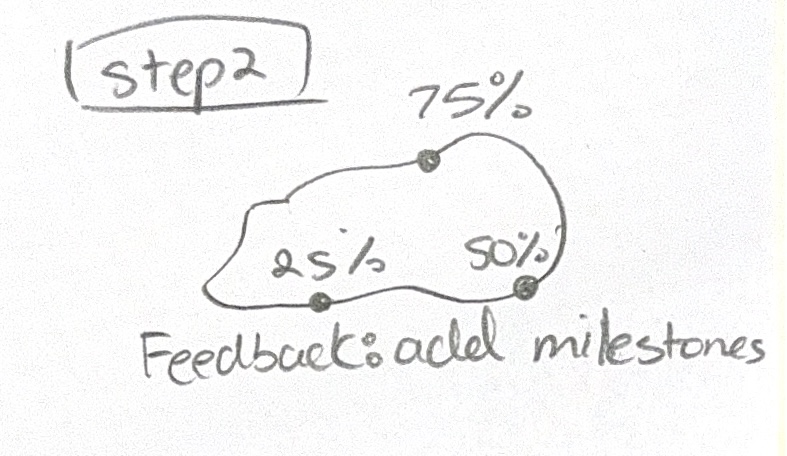 step2
75%
25% 50%
Feedback: add milestones